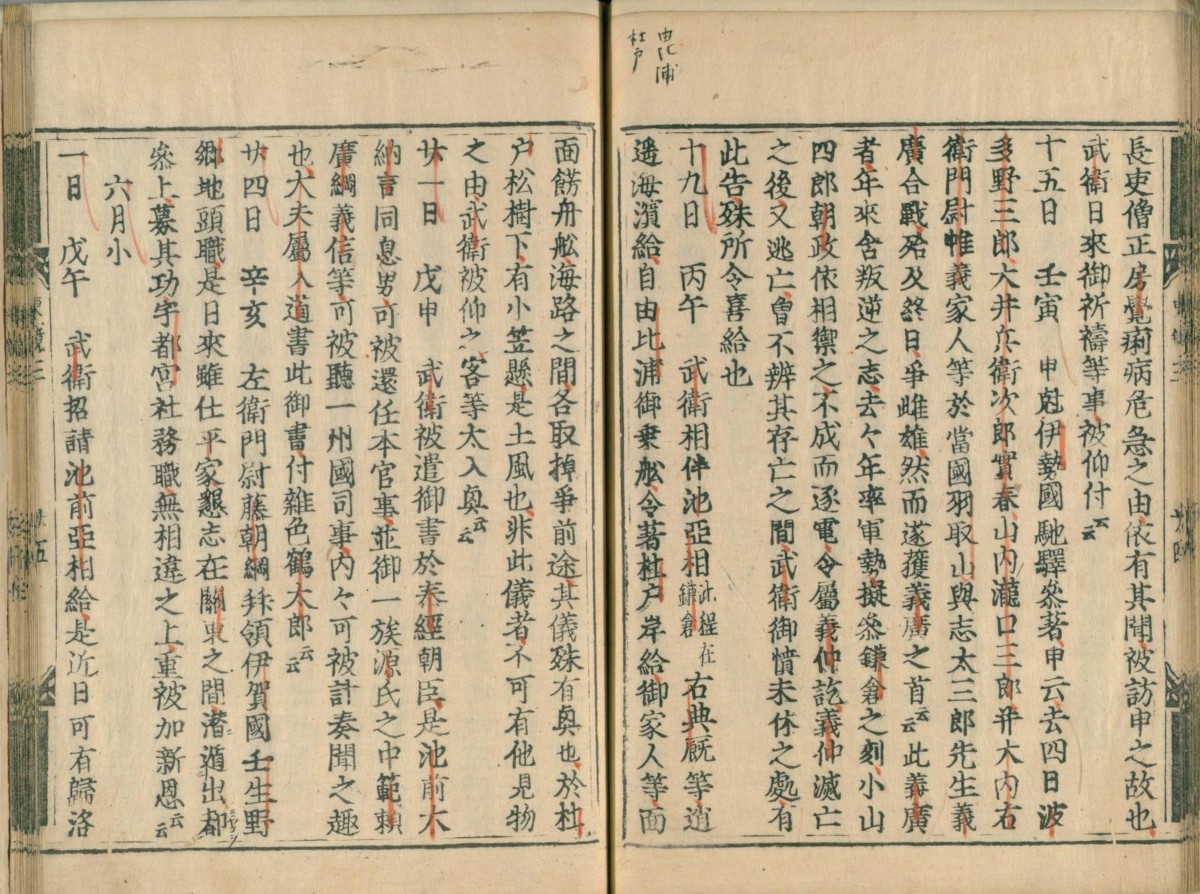 由比浦
杜戸
長吏僧正房覺痢病危急之由依有其聞被訪申之故也
武衛日來御祈禱等事被仰付云云
十五日　壬寅　申尅伊勢國馳驛叅著申云去四日波
多野三郎大井兵衛次郎實春山内瀧口三郎并大内右
衛門尉惟義家人等於當國羽取山與志太三郎先生義
廣合戰殆及終日爭雌雄然而遂獲義廣之首云云此義廣
者年來含叛逆之志去々年率軍勢擬叅鎌倉之刻小山
四郎朝政依相禦之不成而逐電令屬義仲訖義仲滅亡
之後又逃亡曾不辨其存亡之間武衛御憤未休之處有
此告殊所令喜給也
十九日　丙午　武衛相伴池亞相此程在鎌倉右典厩等逍
遥海濵給自由比浦御乗舩令著杜戸岸給御家人等面
面餝舟舩海路之間各取掉爭前途其儀殊有奥也於杜
戸松樹下有小笠懸是土風也非此儀者不可有他見物
之由武衛被仰之客等太入奥云云
廿一日　戊申　武衛被遣御書於泰經朝臣是池前大
納言同息男可被還任本官事並御一族源氏之中範頼
廣綱義信等可被聽一州國司事内々可被計奏聞之趣
也大夫屬入道書此御書付雜色鶴太郎云云
廿四日　辛亥　左衛門尉藤朝綱拜領伊賀國壬生野
郷地頭職是日來雖仕平家懇志在關東之間潜遁出都
叅上募其功宇都宮社務職無相違之上重被加新恩云云
六月小
一日　戊午　武衛招請池前亞相給是近日可有歸洛